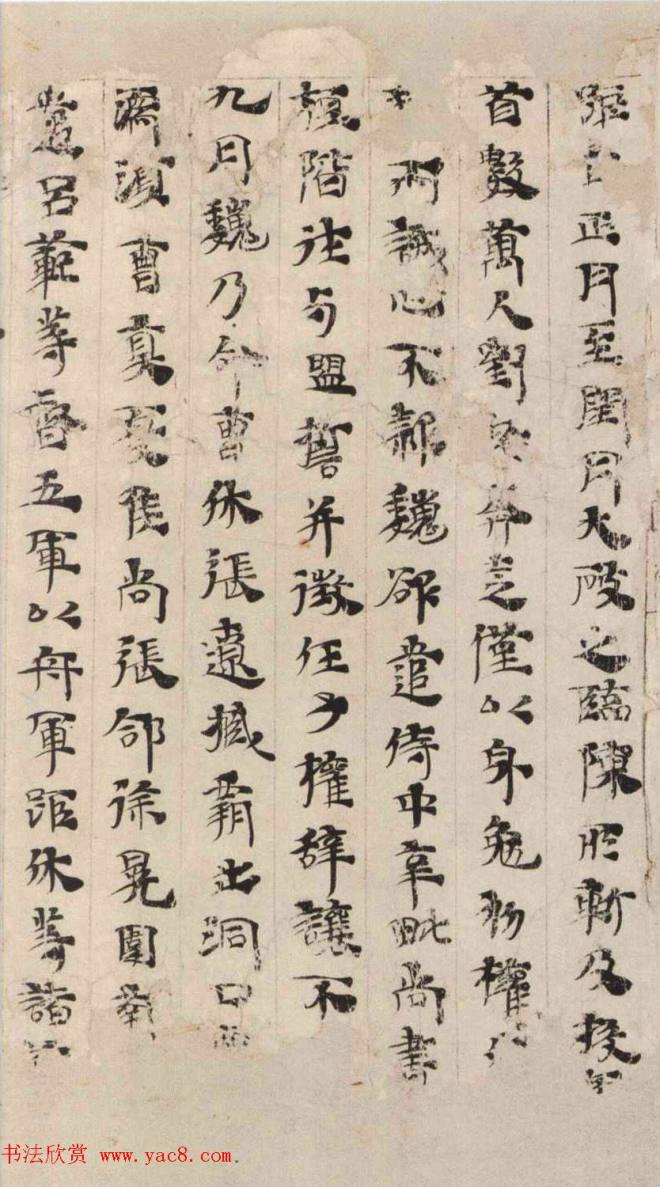 正月至閏月大破之臨陳所斬及投
首數萬人劉備奔走僅以身免初權
誠心不款魏欲遣侍中辛毗尚書
桓階往与盟誓并徵任子權辞讓不
九月魏乃命曹休張遼臧霸出洞口
濡須曹真夏侯尚張郃徐晃圍南
遣呂範等督五軍以舟軍距休等諸
书法欣赏 www.yac8.com